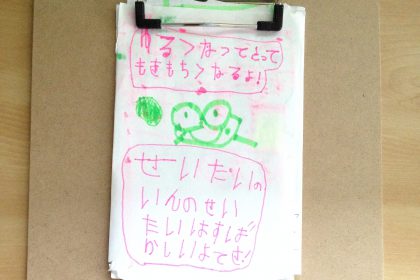 ゆる>なってとって
もきもち>なるよ!
せーいだいの
いんのせい
たいはすば
かしいよてす!